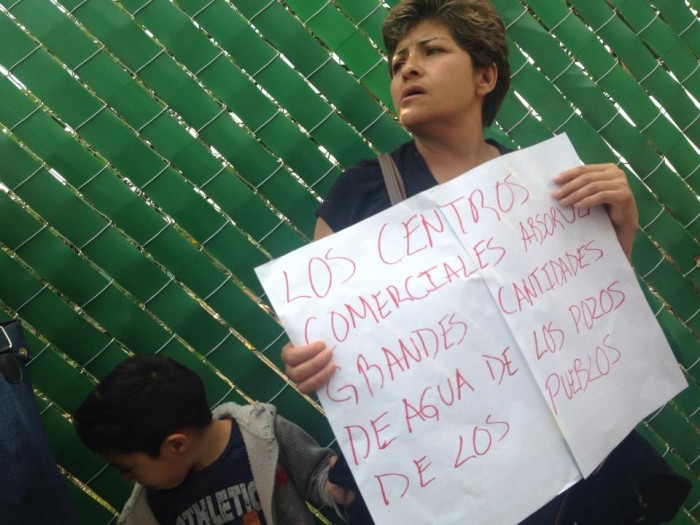 LOS CENTROS
COMERCIALES ABSORVEN
GRANDES CANTIDADES
DE AGUA DE LOS POZOS
DE LOS PUEBLOS
ATHLETIC